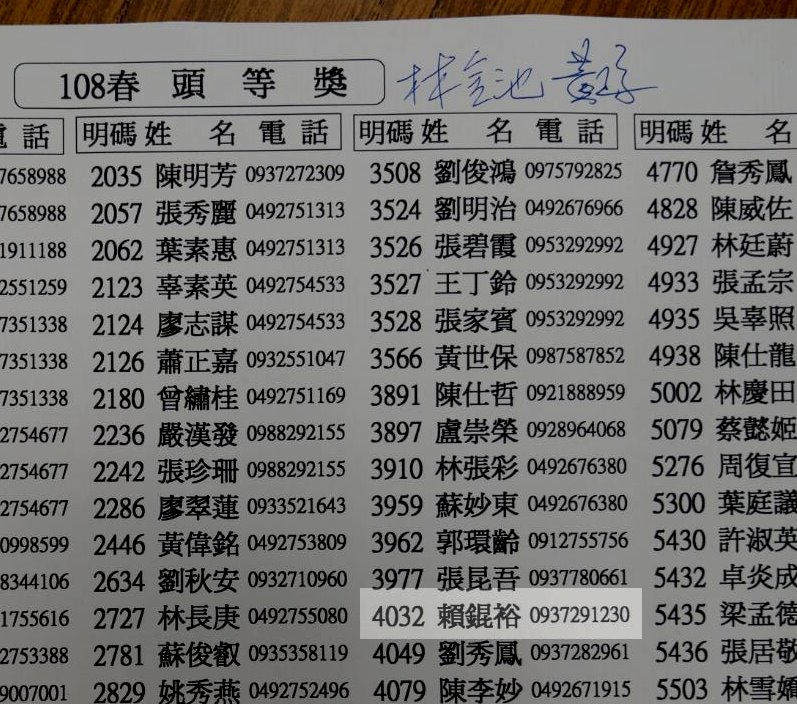 108春 頭 等 獎 林金池
電 話 明碼 姓 名 電 話 明碼 姓 名 電 話 明碼 姓 名
7658988 2035 陳明芳 0937272309 3508 劉俊鴻 0975792825 4770 詹秀鳳
7658988 2057 張秀麗 0492751313 3524 劉明治 0492676966 4828 陳威佐
1911188 2062 葉素惠 0492751313 3526 張碧霞 0953292992 4927 林廷蔚
2551259 2123 辜素英 0492754533 3527 王丁鈴 0953292992 4933 張孟宗
7351338 2124 廖志謀 0492754533 3528 張家賓 0953292992 4935 吳辜照
7351338 2126 蕭正嘉 0932551047 3566 黃世保 0987587852 4938 陳仕龍
7351338 2180 曾繡桂 0492751169 3891 陳仕哲 0921888959 5002 林慶田
2754677 2236 嚴漢發 0988292155 3897 盧崇榮 0928964068 5079 蔡懿姬
2754677 2242 張珍珊 0988292155 3910 林張彩 0492676380 5276 周復宜
2754677 2286 廖翠蓮 0933521643 3959 蘇妙東 0492676380 5300 葉庭議
0998599 2446 黃偉銘 0492753809 3962 郭環齡 0912755756 5430 許淑英
8344106 2634 劉秋安 0932710960 3977 張昆吾 0937780661 5432 卓炎成
1755616 2727 林長庚 0492755080 4032 賴錕裕 0937291230 5435 梁孟德
2753388 2781 蘇俊叡 0935358119 4049 劉秀鳳 0937282961 5436 張居敬
9007001 2829 姚秀燕 0492752496 4079 陳李妙 0492671915 5503 林雪嬌